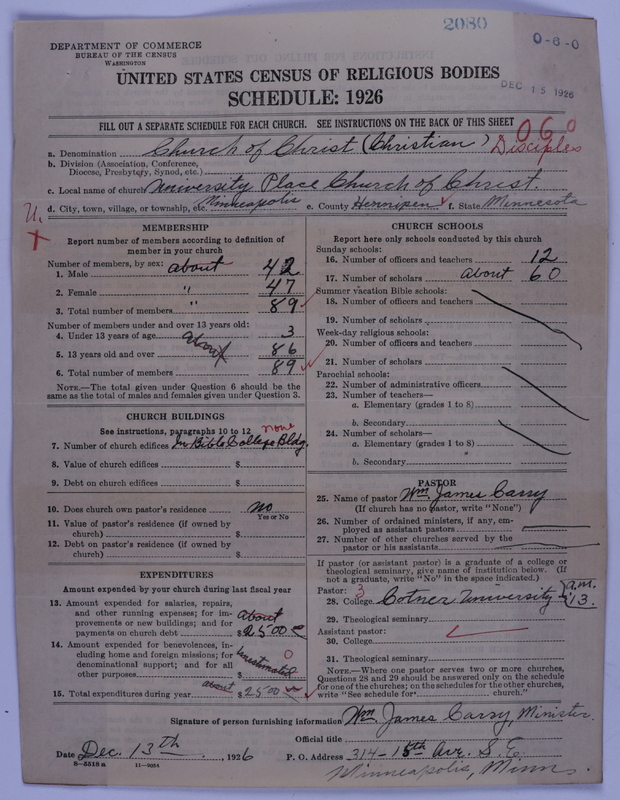 2080
0-6-0
DEPARTMENT OF COMMERCE
BUREAU OF THE CENSUS
WASHINGTON
UNITED STATES CENSUS OF RELIGIOUS BODIES
DEC 15 1926
SCHEDULE: 1926
FILL OUT A SEPARATE SCHEDULE FOR EACH CHURCH. SEE INSTRUCTIONS ON THE BACK OF THIS SHEET
060
a. Denomination Church of Christ (Christian) Disciples
b. Division (Association, Conference, Diocese, Presbytery, Synod, etc.)
c. Local name of church University Place Church of Christ.
d. City, town, village, or township, etc. Minneapolis e. County Hennipen f. State Minnesota
U.
X
MEMBERSHIP
Report number of members according to definition of member in your church
Number of members, by sex: about
1. Male 42
2. Female " 47
3. Total number of members " 89
Number of members under and over 13 years old:
4. Under 13 years of age 3
about
5. 13 years old and over 86
6. Total number of members 89
NOTE.—The total given under Question 6 should be the same as the total of males and females given under Question 3.
CHURCH BUILDINGS
See instructions, paragraphs 10 to 12 none
7. Number of church edifices In Bible College Bldg.
8. Value of church edifices $
9. Debt on church edifices $
10. Does church own pastor's residence no
Yes or No
11. Value of pastor's residence (if owned by church) $
12. Debt on pastor's residence (if owned by church) $
EXPENDITURES
Amount expended by your church during last fiscal year
13. Amount expended for salaries, repairs, and other running expenses; for improvements or new buildings; and for payments on church debt about $2500
14. Amount expended for benevolences, including home and foreign missions; for denominational support; and for all other purposes $ unestimated 0
15. Total expenditures during year about $2500
CHURCH SCHOOLS
Report here only schools conducted by this church
Sunday schools:
16. Number of officers and teachers 12
17. Number of scholars about 60
Summer vacation Bible schools:
18. Number of officers and teachers
19. Number of scholars
Week-day religious schools:
20. Number of officers and teachers
21. Number of scholars
Parochial schools:
22. Number of administrative officers
23. Number of teachers—
a. Elementary (grades 1 to 8)
b. Secondary
24. Number of scholars—
a. Elementary (grades 1 to 8)
b. Secondary
PASTOR
25. Name of pastor Wm James Carry
(If church has no pastor, write "None")
26. Number of ordained ministers, if any, employed as assistant pastors
27. Number of other churches served by the pastor or his assistants
If pastor (or assistant pastor) is a graduate of a college or theological seminary, give name of institution below. (If not a graduate, write "No" in the space indicated.)
Pastor: 3
28. College Cotner University A.M. '13.
29. Theological seminary
Assistant pastor:
30. College
31. Theological seminary
NOTE.—Where one pastor serves two or more churches, Questions 28 and 29 should be answered only on the schedule for one of the churches; on the schedules for the other churches, write "See schedule for church."
Signature of person furnishing information Wm. James Carry, Minister.
Official title
Date Dec. 13th, 1926 P. O. Address 314-15th Ave. S.E.
8—5518 a 11—9054
Minneapolis, Minn.